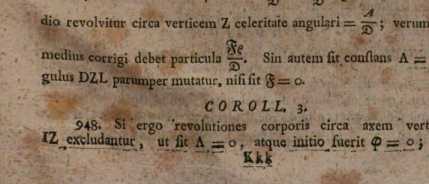 dio revolvitur circa verticem Z celeritate angulari = A/𝔇; verum
medius corrigi debet particula 𝔉ϱ/𝔇. Sin autem sit constans Λ =
gulus DZL parumper mutatur, nisi sit 𝔉 = 0.
COROLL. 3.
948. Si ergo revolutiones corporis circa axem vert
IZ excludantur, ut sit Λ = 0, atque initio fuerit Φ = 0;
Kkk